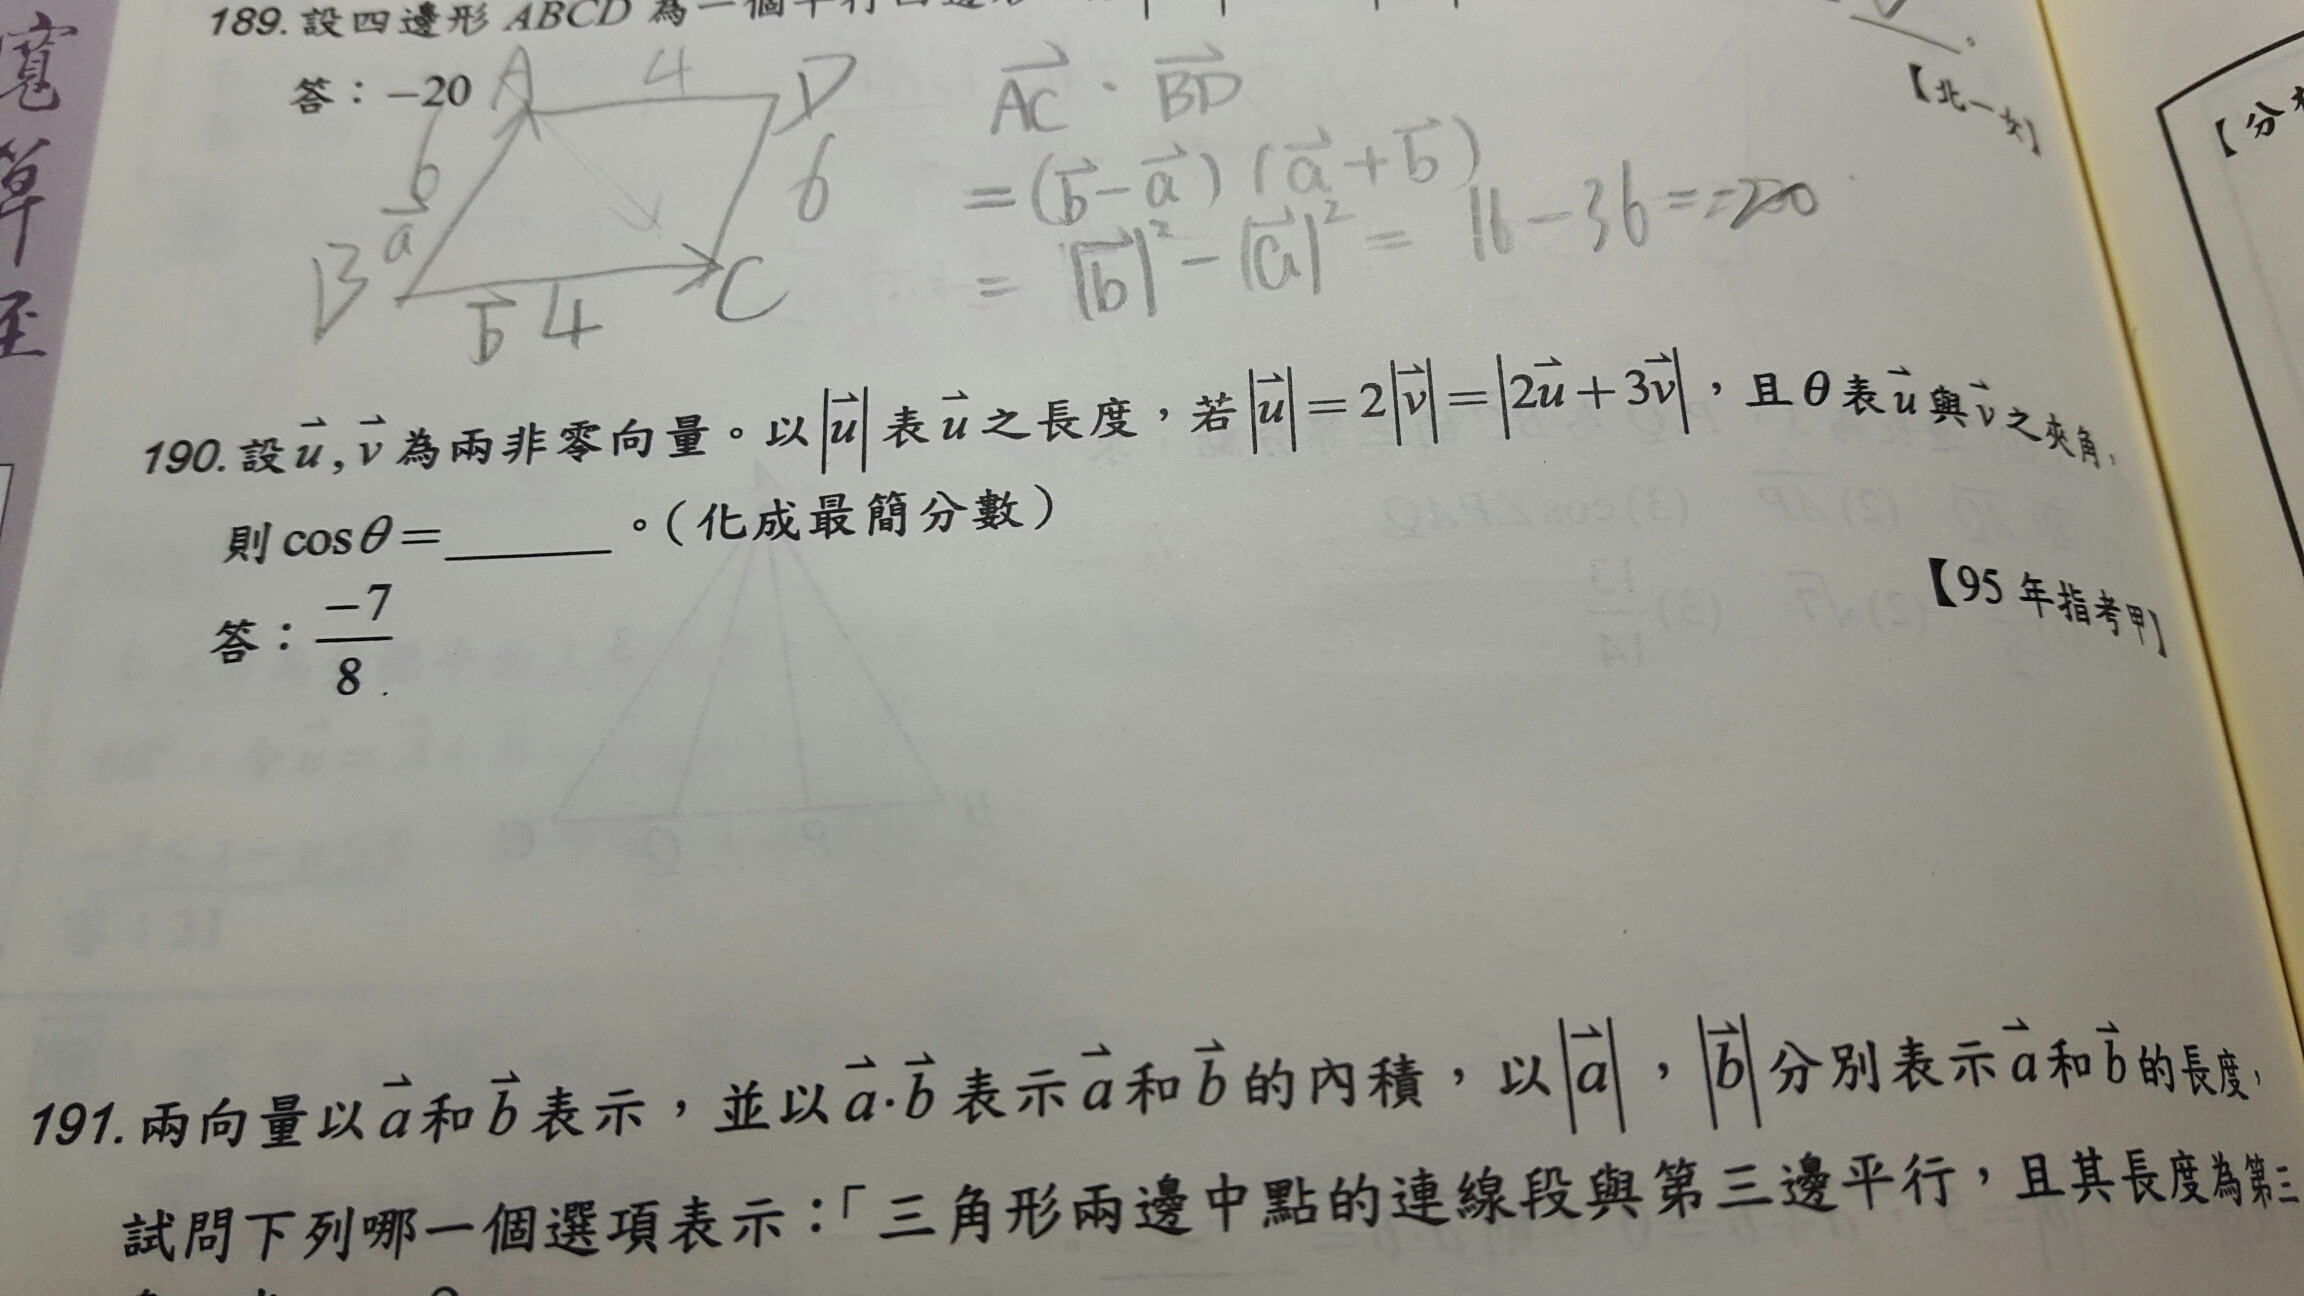 寬
草
至
189. 設四邊形 ABCD 為一個平行四邊形
答：−20
A 4 D
6
a
B
b 4 C
6
AC · BD
= (b − a) (a + b)
= |b|² − |a|² = 16 − 36 = −20
【北一女】
【分
190. 設 u, v 為兩非零向量。以 |u| 表 u 之長度，若 |u| = 2|v| = |2u + 3v|，且 θ 表 u 與 v 之夾角，
則 cos θ = ______。(化成最簡分數)
【95 年指考甲】
答：−7/8
191. 兩向量以 a 和 b 表示，並以 a·b 表示 a 和 b 的內積，以 |a|，|b| 分別表示 a 和 b 的長度，
試問下列哪一個選項表示：「三角形兩邊中點的連線段與第三邊平行，且其長度為第三